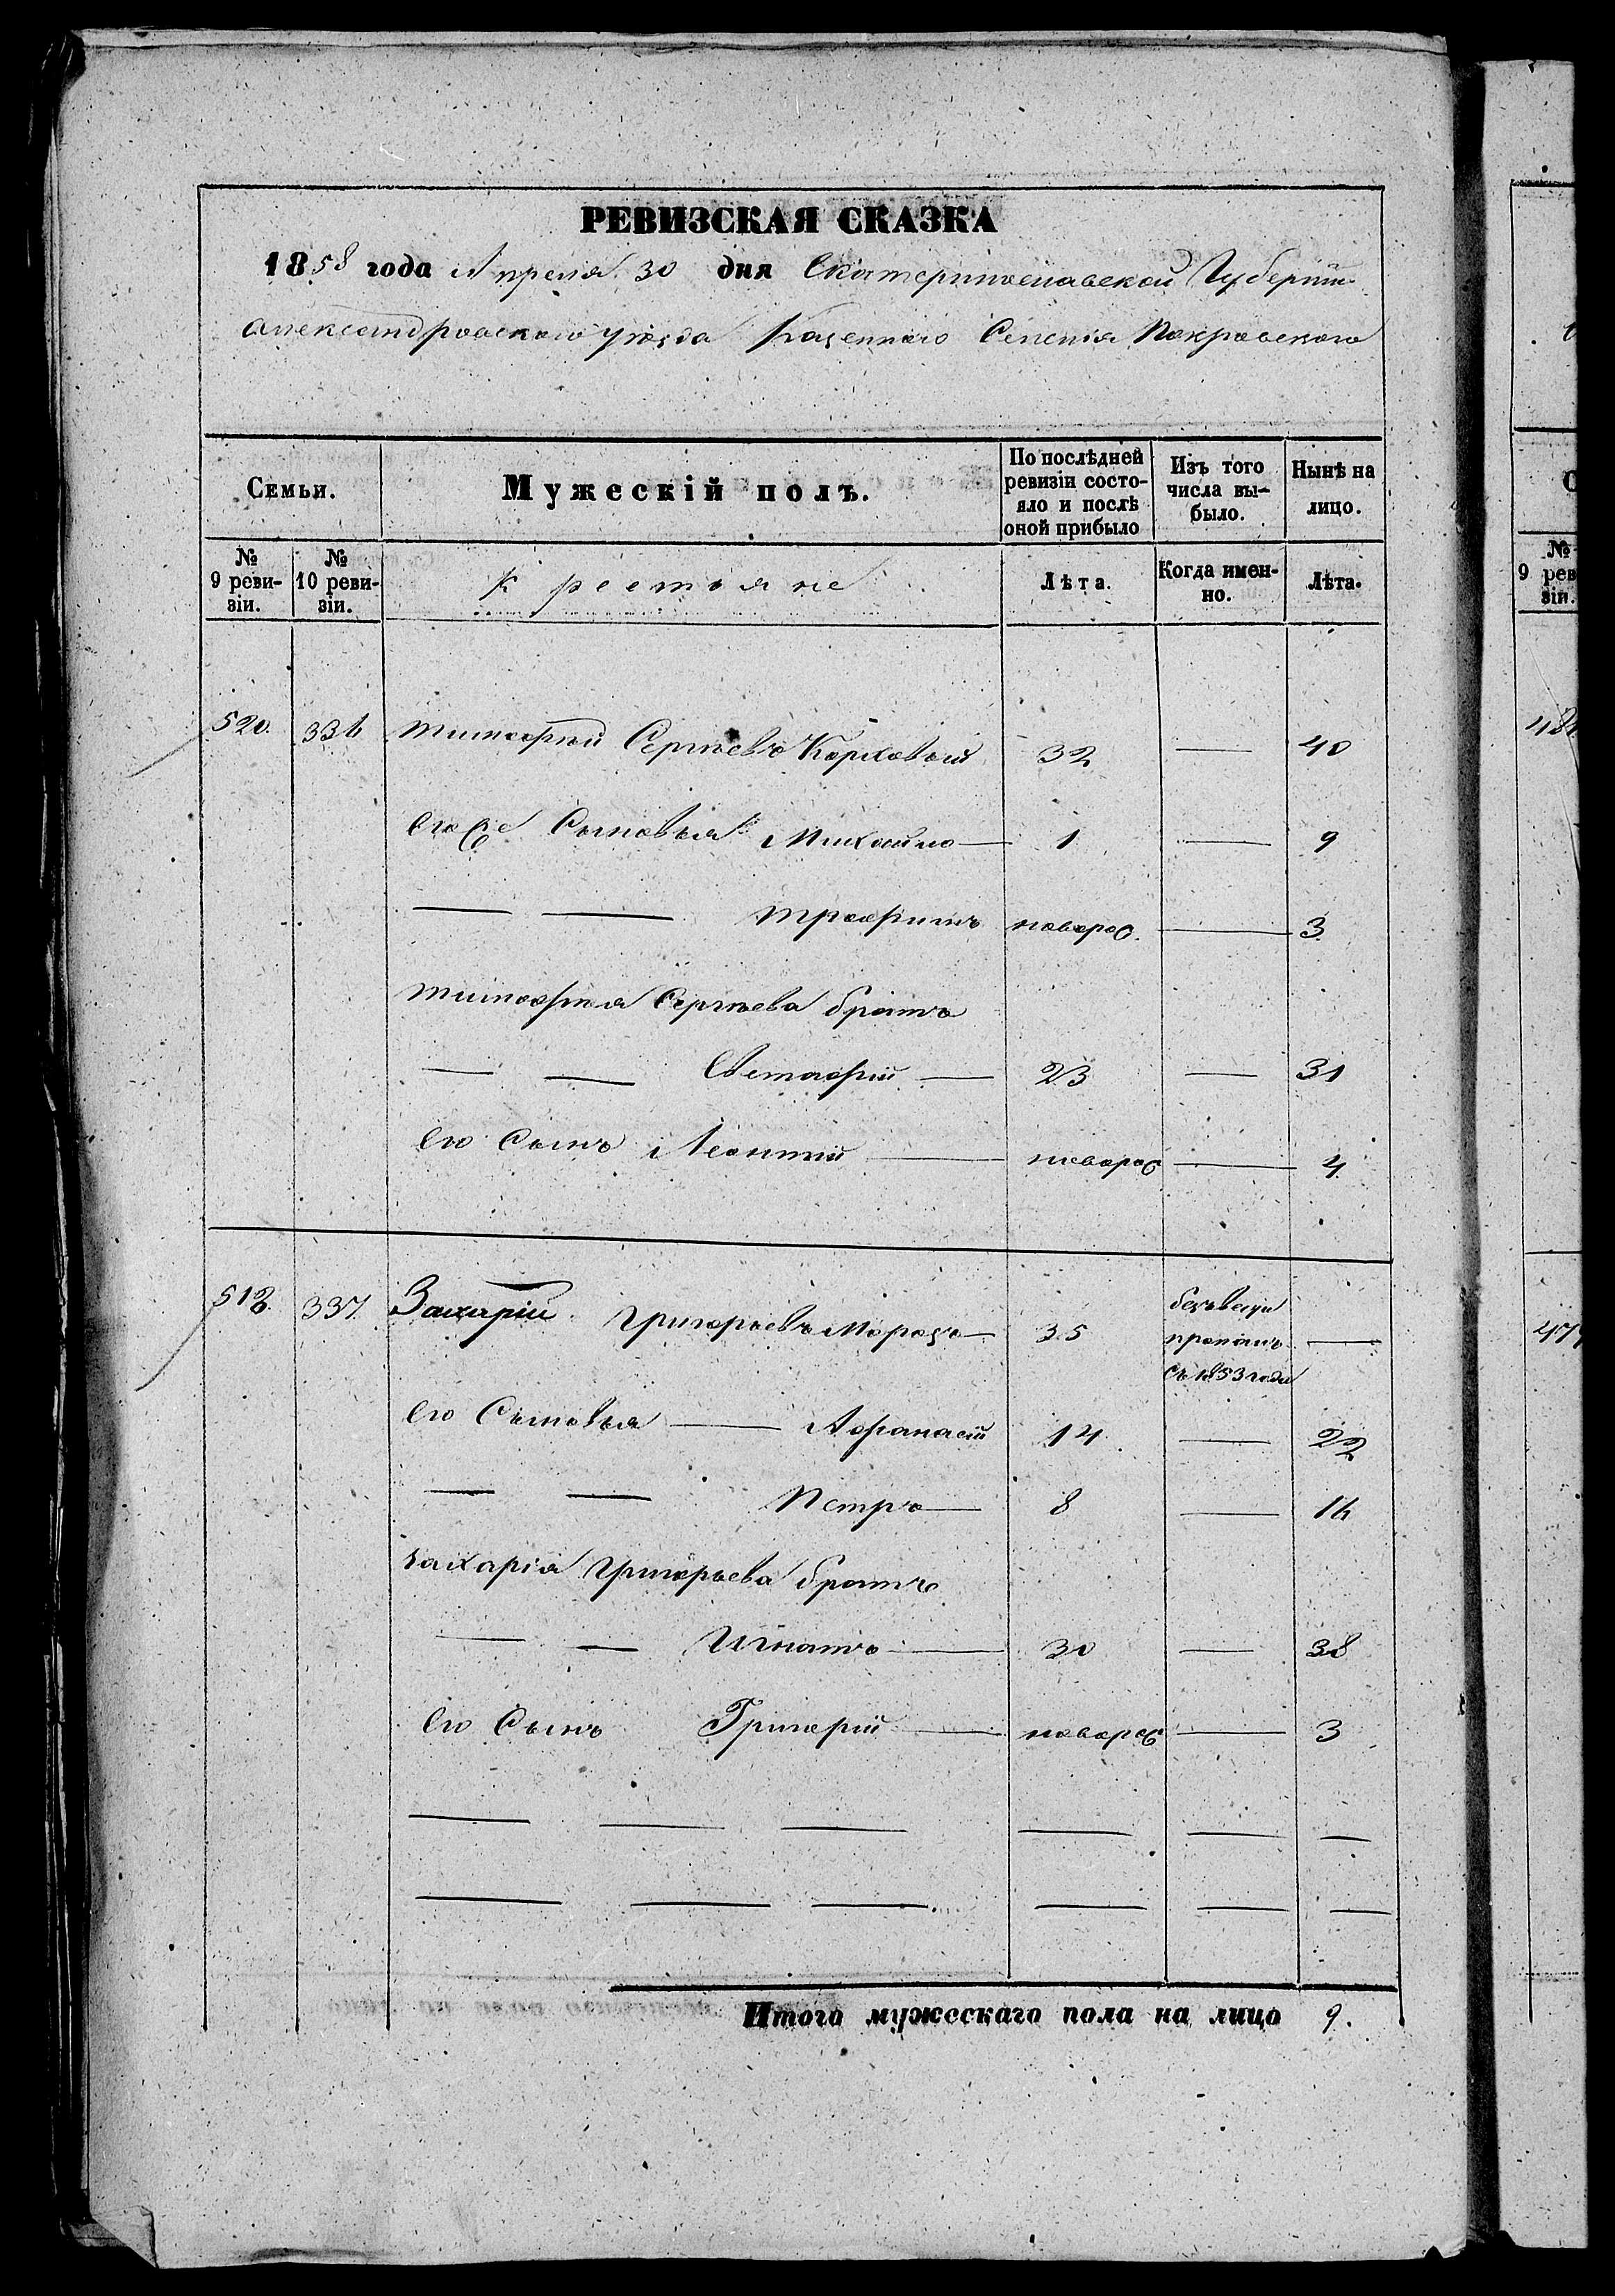 РЕВИЗСКАЯ СКАЗКА
1858 года Апреля 30 дня Екатеринославской Губернiи
Александровскаго уѣзда Казеннаго Селенiя Покровскаго
Семьи.
Мужескiй полъ.
По послѣдней ревизiи состо-
яло и послѣ
оной прибыло
Изъ того
числа вы-
было.
Нынѣ на
лицо.
№
9 реви-
зiи.
№
10 реви-
зiи.
Крестьяне
Лѣта.
Когда имен-
но.
Лѣта.
520. 336 Тимофей Сергѣевъ 32 — 40
его Сыновья Михайло — 1 — 9
— — Трофимъ новорож. — 3
Тимофея Сергѣева братъ
— — Евстафiй — 23 — 31
Его Сынъ Леонтiй — новорож — 4
518. 337 Захарiй Григорьевъ Морозъ — 35 безъвести пропалъ съ 1853 года —
Его Сыновья — Афанасiй 14 — 22
— — Петръ — 8 — 16
Захарiя Григорьева братъ
— — Игнатъ — 30 — 38
Его Сынъ Григорiй — новорож — 3
— — — — — —
— — — — — —
Итого мужескаго пола на лицо 9.
№
9 рев
зiи.